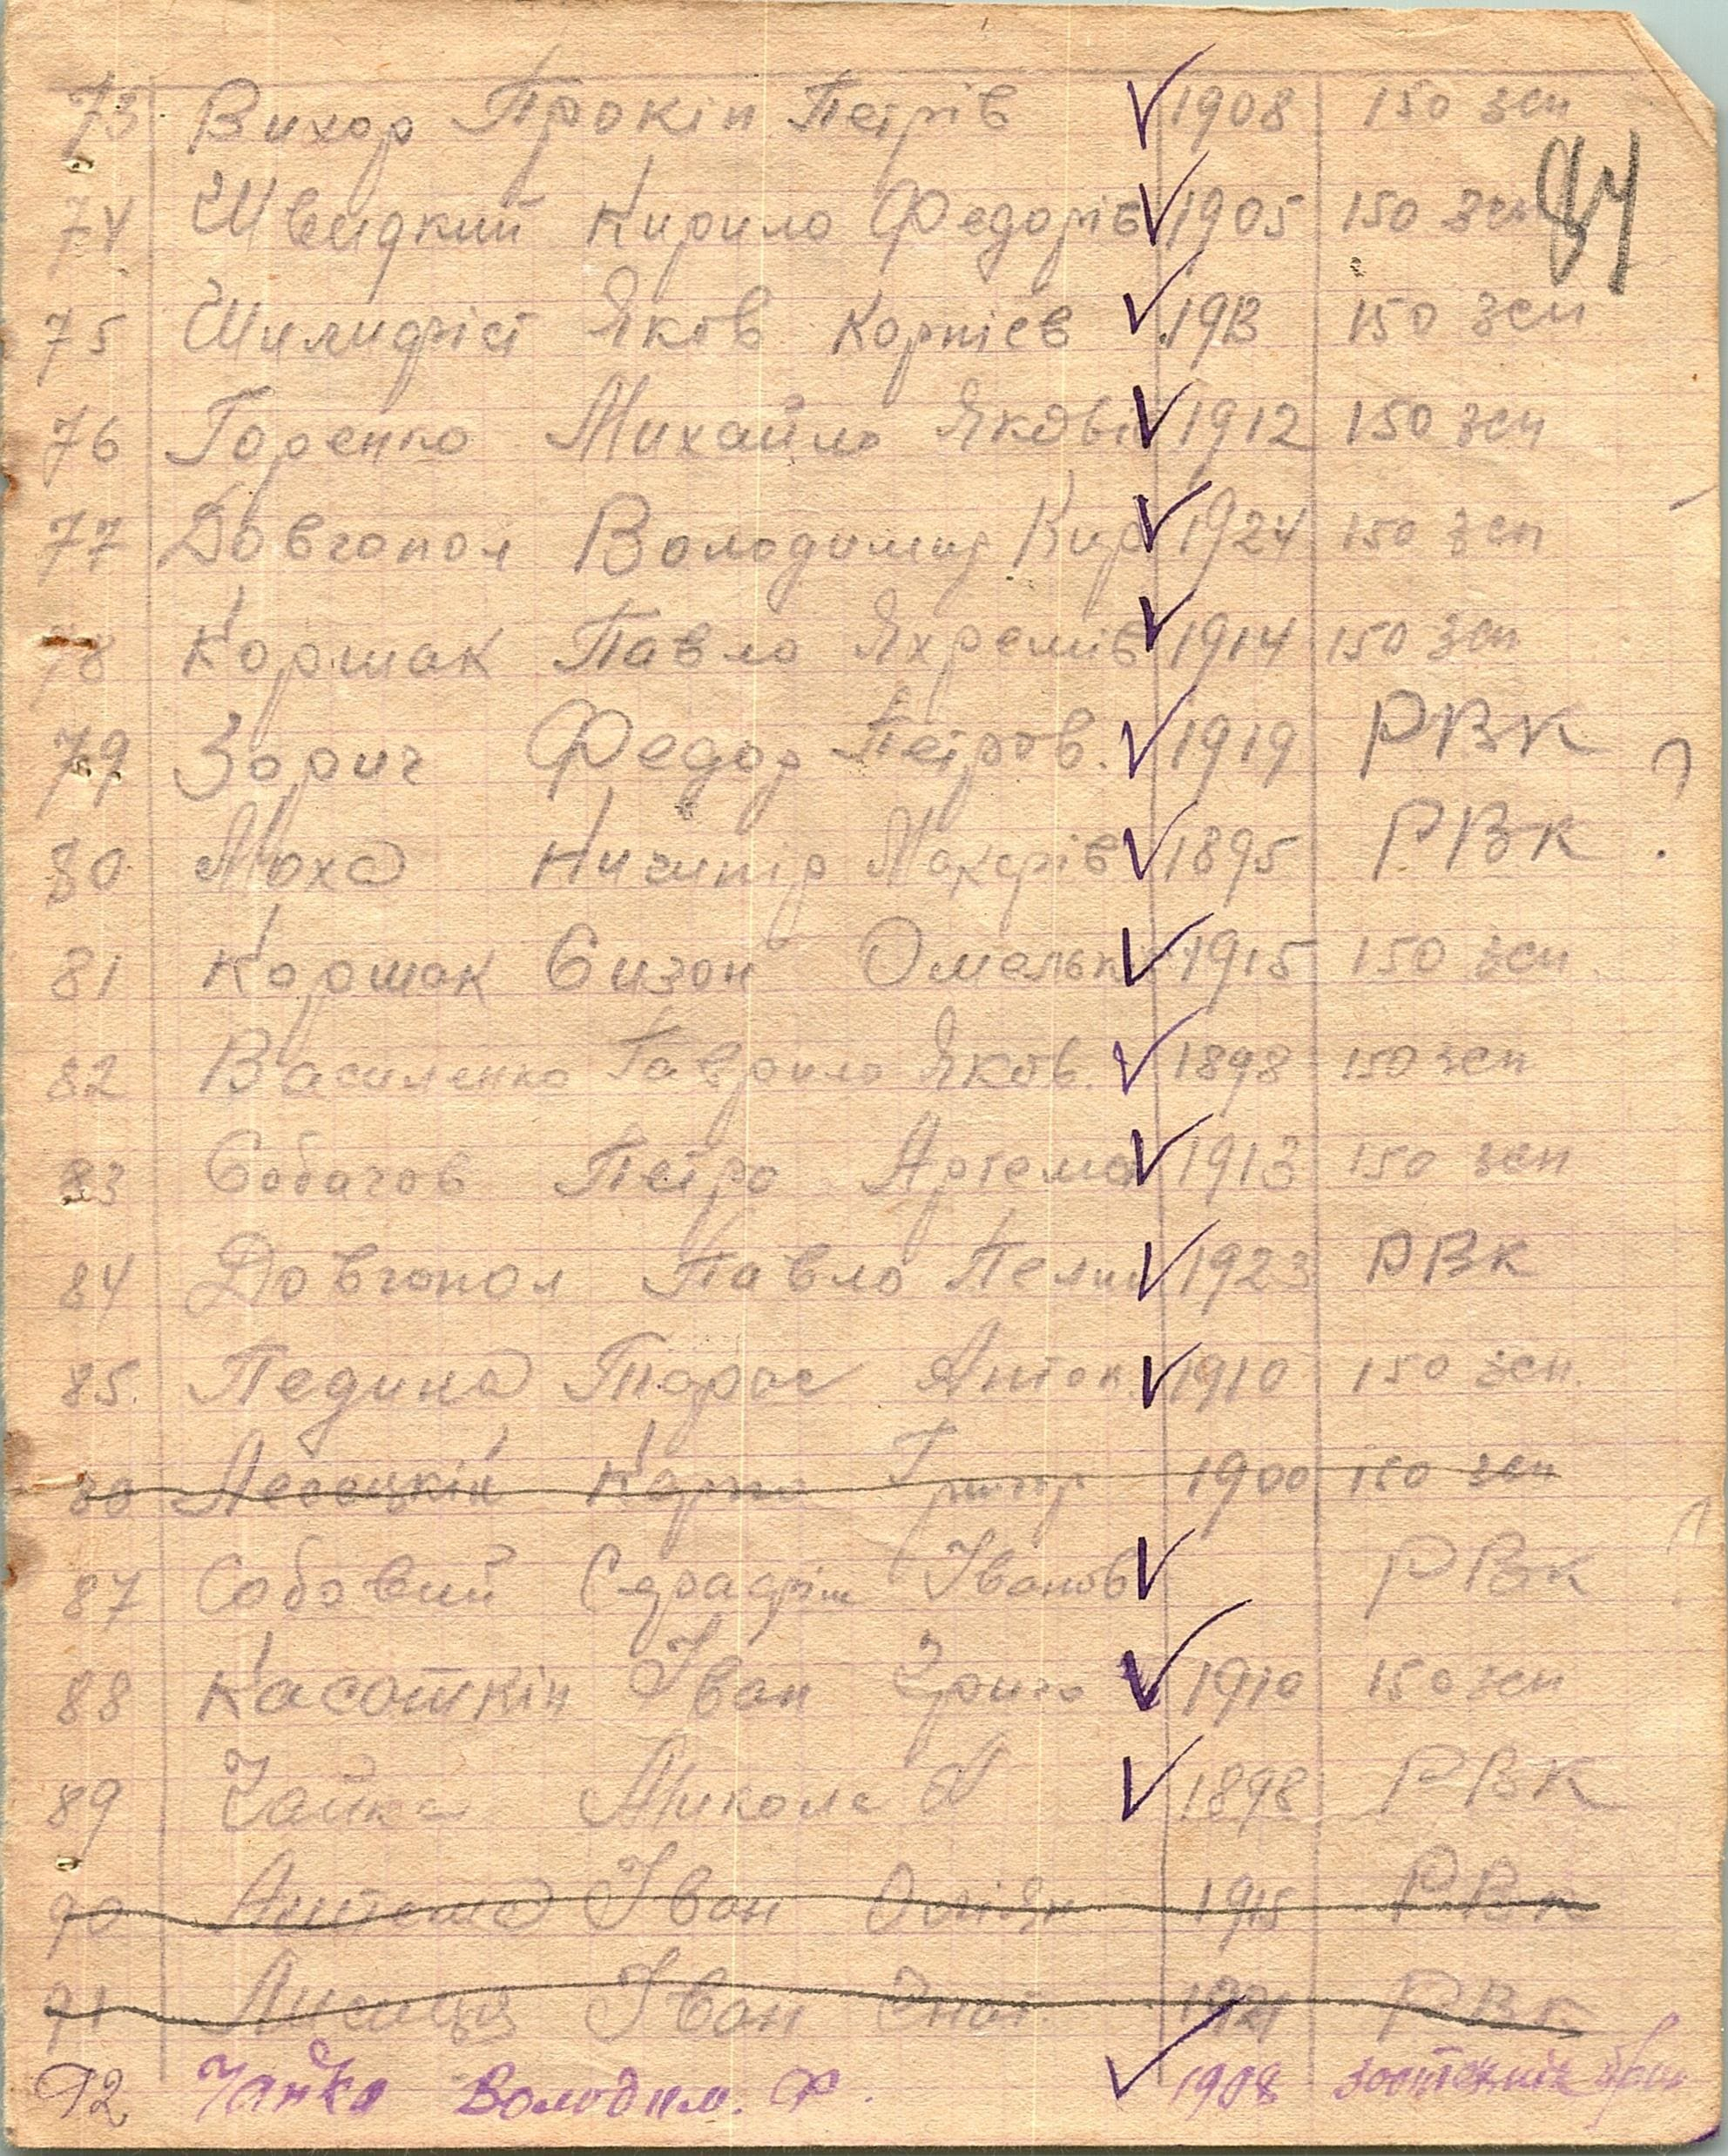 73 Вихор Прокіп Петрів 1908 150 зсп
84
74 Швидкий Кирило Федорів 1905 150 зсп
75 Шилидріст Яков Корнієв 1913 150 зсп
76 Горенко Михайло Якові 1912 150 зсп
77 Довгопол Володимир Кир 1924 150 зсп
78 Коршак Павло Яхремів 1914 150 зсп
79 Зорич Федор Петров. 1919 РВК ?
80 Моха Ничипір Макарів 1895 РВК
81 Коршак Сизон Омельк 1915 150 зсп
82 Василенко Гаврило Яков. 1898 150 зсп
83 Собачов Петро Артемо 1913 150 зсп
84 Довгопол Павло Пелип 1923 РВК
85. Педина Тарас Антон 1910 150 зсп.
1900 150 зсп
87 Собовий Іванов РВК
88 Касоткін Іван Григо 1910 150 зсп
89 Чайка Микола 1898 РВК
90 Іван 1915 РВК
91 Лисиця Іван Гнат. 1921 РВК
92 Чайка Володим. Ф. 1908 зоотехнік